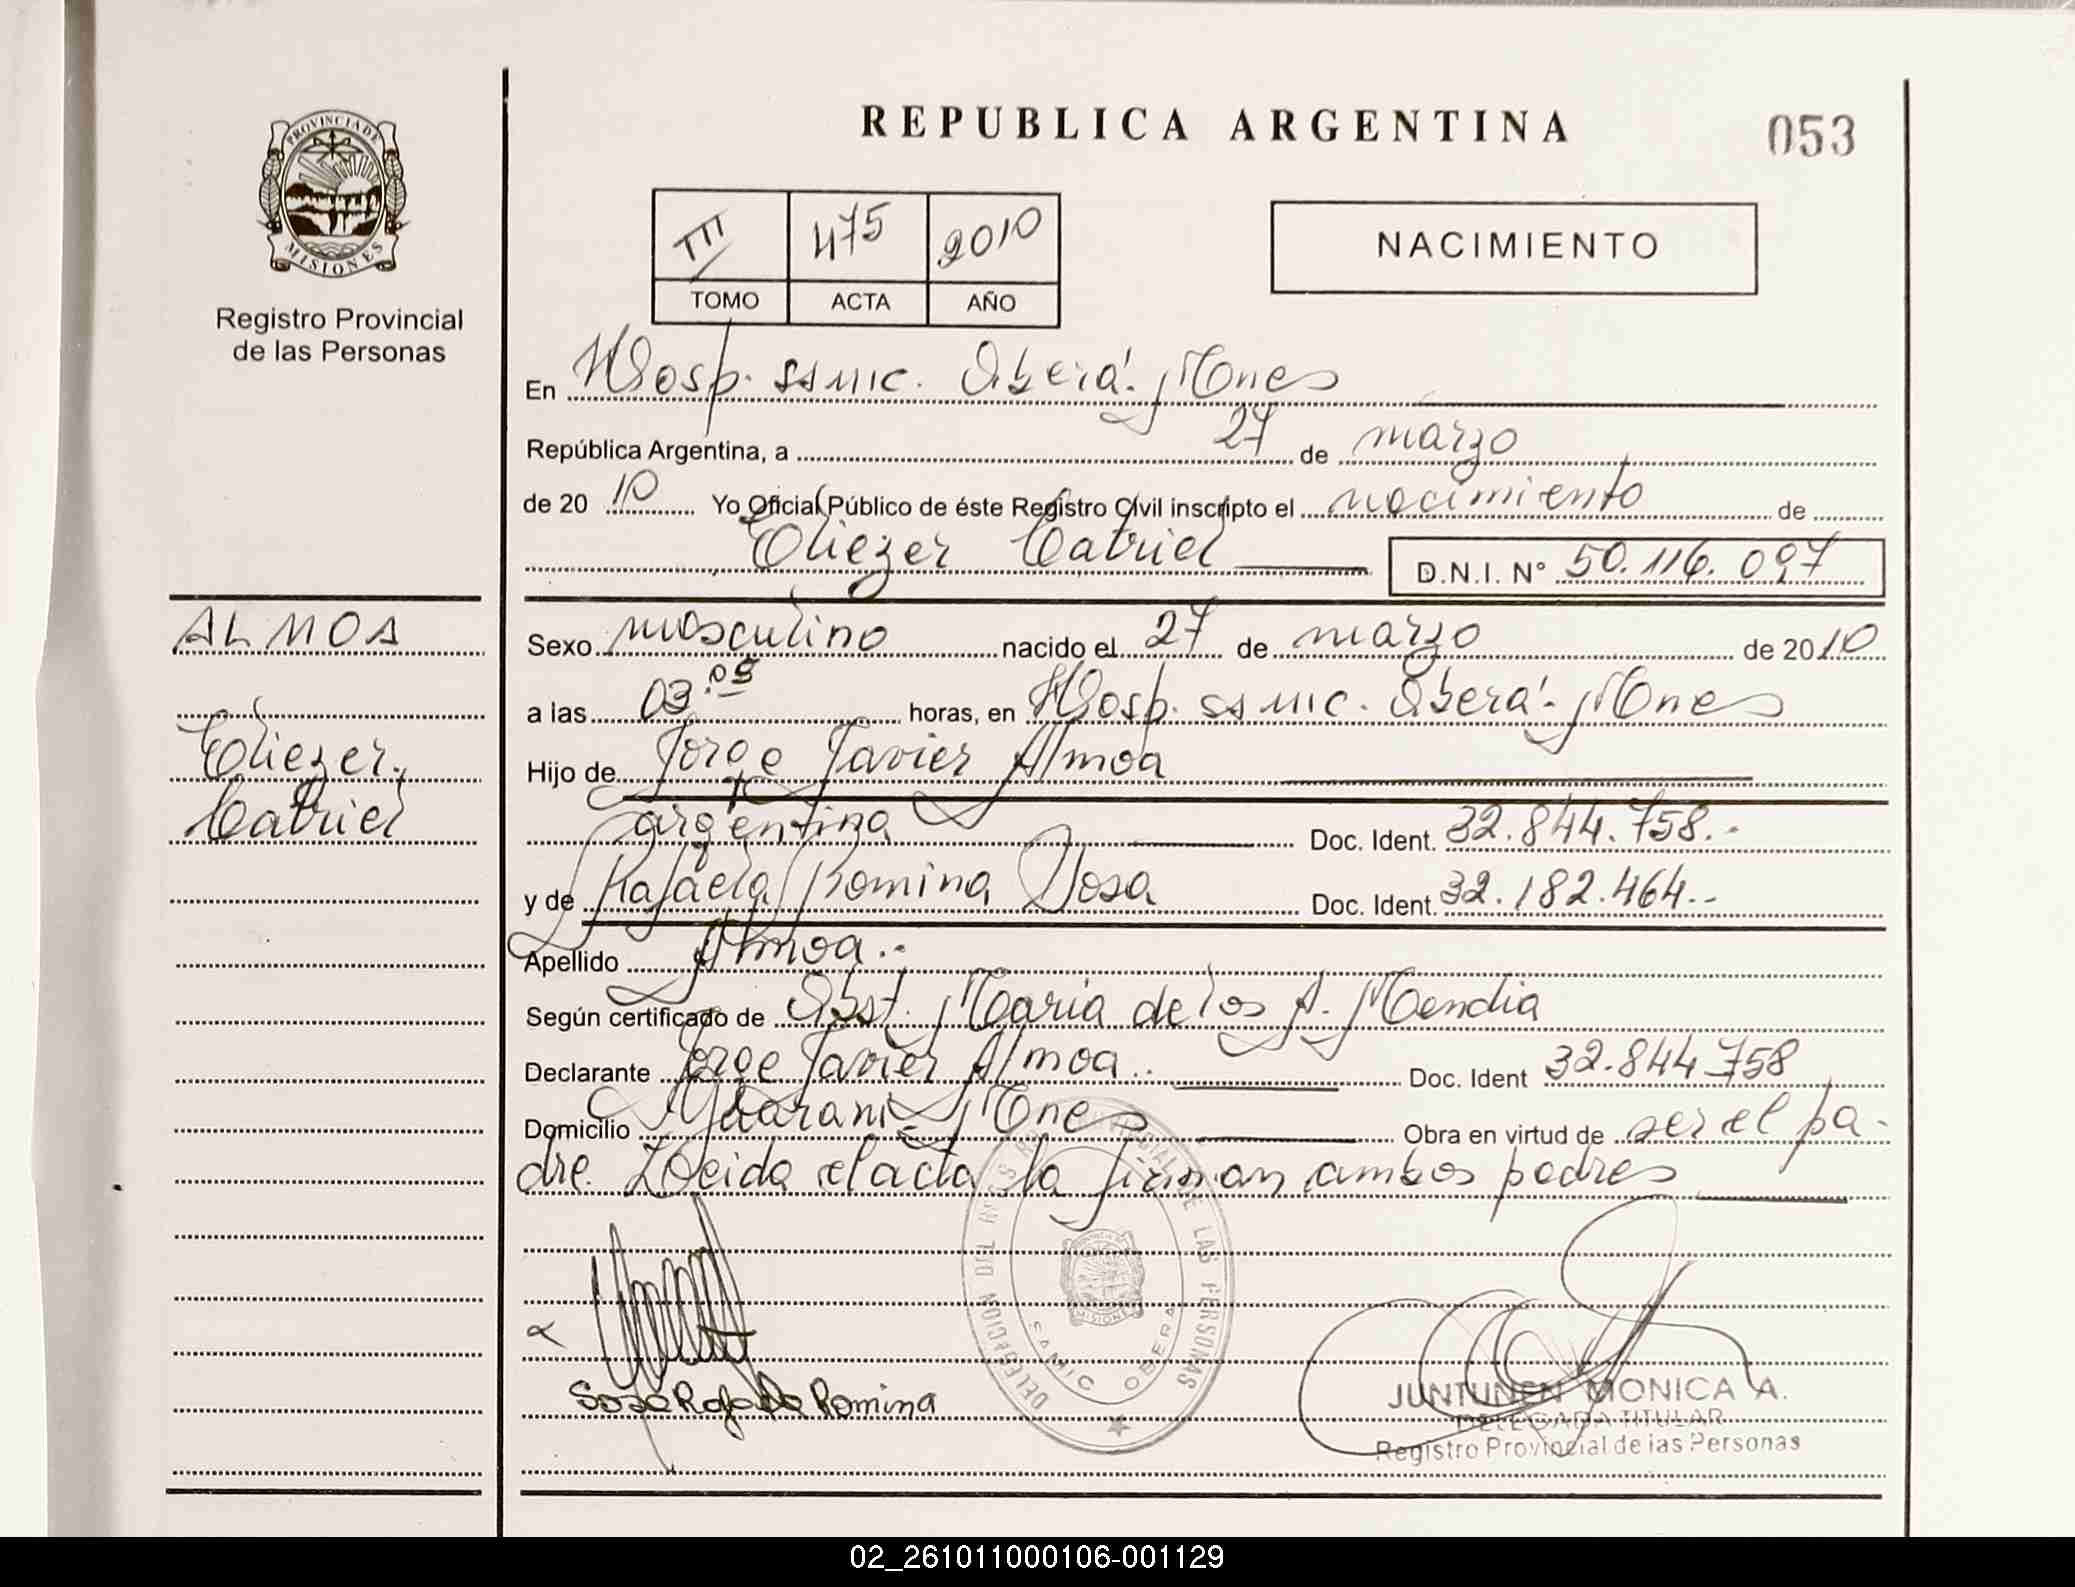 PROVINCIA DE
MISIONES
Registro Provincial
de las Personas
REPUBLICA ARGENTINA
053
III 475 2010
TOMO ACTA AÑO
NACIMIENTO
En Hosp. ssmic. Oberá. Mnes
República Argentina, a 27 de marzo
de 2010 Yo Oficial Público de éste Registro Civil inscripto el nacimiento de
Eliezer Catriel D.N.I. N° 50.116.097
ALMOA
Eliezer
Catriel
Sexo masculino nacido el 27 de marzo de 2010
a las 03.05 horas, en Hosp. ssmic. Oberá. Mnes
Hijo de Jorge Javier Almoa
argentina Doc. Ident. 32.844.758.-
y de Rafaela Romina Sosa Doc. Ident. 32.182.464.-
Apellido Almoa.-
Según certificado de Obst. Maria de los A. Mendia
Declarante Jorge Javier Almoa.. Doc. Ident 32.844.758
Domicilio Guarani Mnes Obra en virtud de ser el pa-
dre. Leida el acta la firman ambos padres
DELEGACION DEL REGISTRO PROVINCIAL DE LAS PERSONAS
SAMIC OBERA
MISIONES
Sosa Rafaela Romina
JUNTUNEN MONICA A.
DELEGADA TITULAR
Registro Provincial de las Personas
02_261011000106-001129